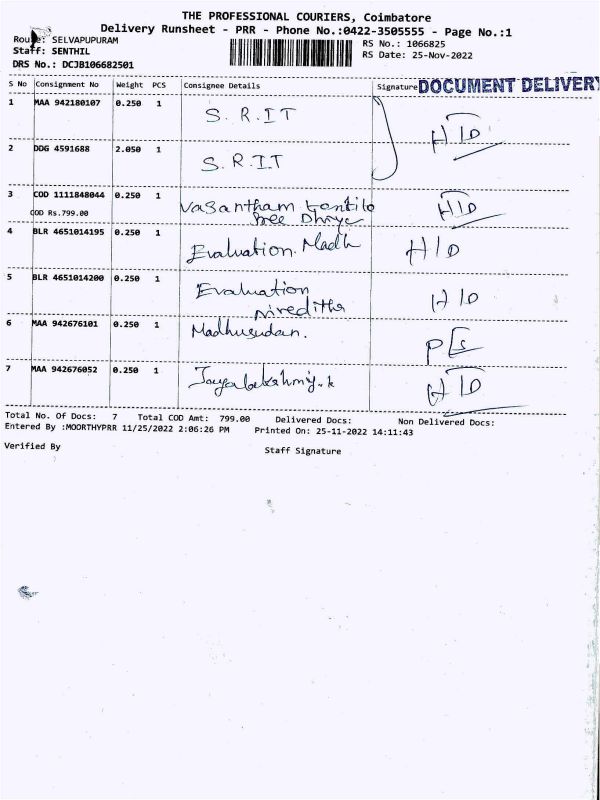 THE PROFESSIONAL COURIERS, Coimbatore
Delivery Runsheet - PRR - Phone No.:0422-3505555 - Page No.:1
Route: SELVAPUPURAM
RS No.: 1066825
Staff: SENTHIL
RS Date: 25-Nov-2022
DRS No.: DCJB106682501
S No Consignment No Weight PCS Consignee Details Signature DOCUMENT DELIVERY
1 MAA 942180107 0.250 1 S.R.IT H/D
2 DDG 4591688 2.050 1 S.R.IT
3 COD 1111848044 0.250 1 Vasantham H/D
COD Rs.799.00 Sree
4 BLR 4651014195 0.250 1 Evaluation. Madh H/D
5 BLR 4651014200 0.250 1 Evaluation H/D
6 MAA 942676101 0.250 1 Madhusudan.
7 MAA 942676052 0.250 1 H/D
Total No. Of Docs: 7 Total COD Amt: 799.00 Delivered Docs: Non Delivered Docs:
Entered By :MOORTHYPRR 11/25/2022 2:06:26 PM Printed On: 25-11-2022 14:11:43
Verified By
Staff Signature